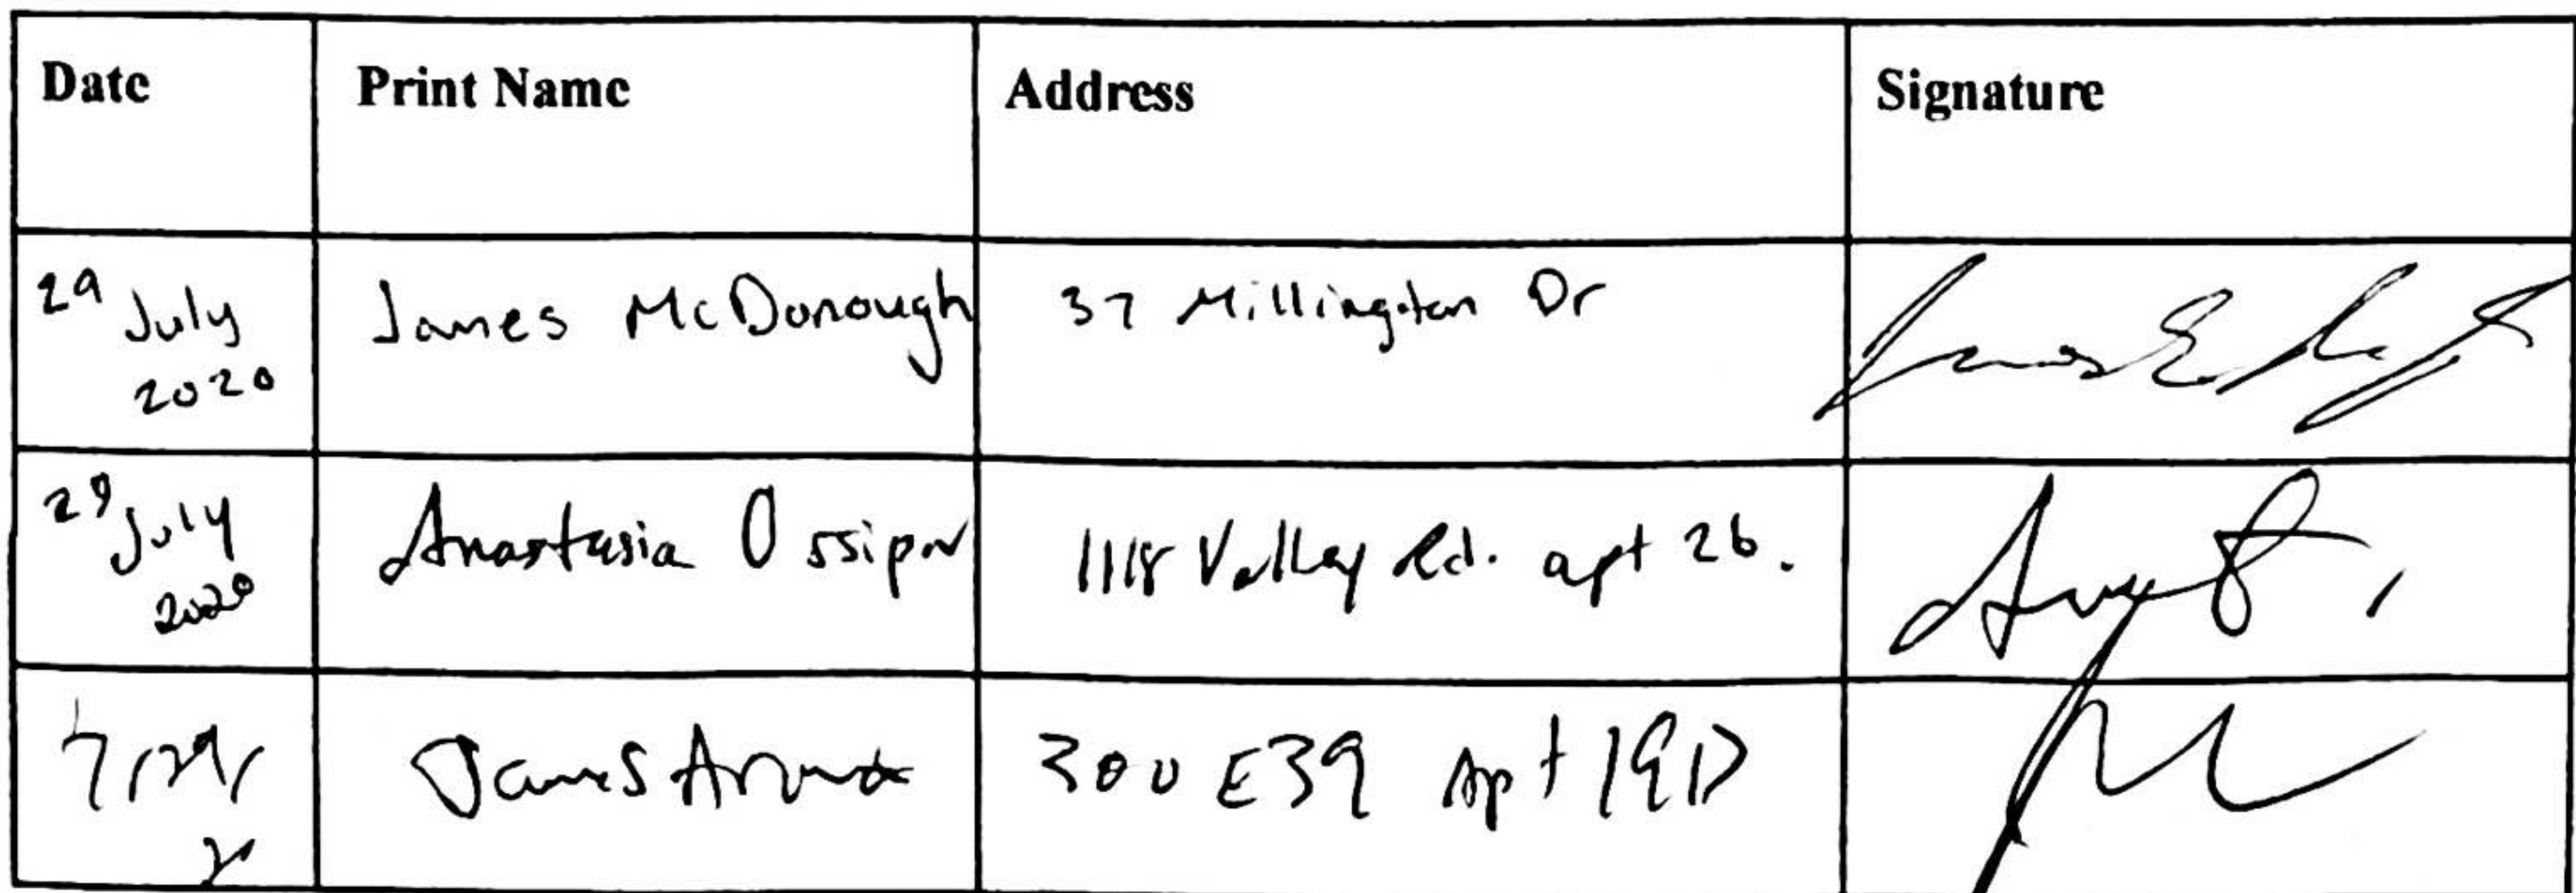 Date Print Name Address Signature
29 July 2020 James McDonough 37 Millington Dr
29 July 2020 Anastasia Ossipov 1118 Valley Rd. apt 2b.
7/29/ James 300 E39 Apt 19D